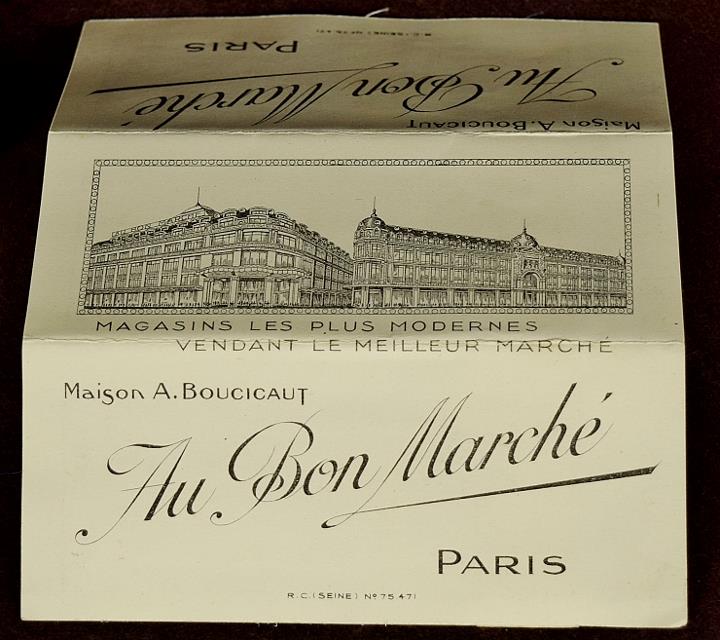 R.C.(SEINE) Nº 75.471
PARIS
Au Bon Marché
Maison A. BOUCICAUT
MAGASINS LES PLUS MODERNES
VENDANT LE MEILLEUR MARCHÉ
Maison A. BOUCICAUT
Au Bon Marché
PARIS
R.C.(SEINE) Nº 75.471